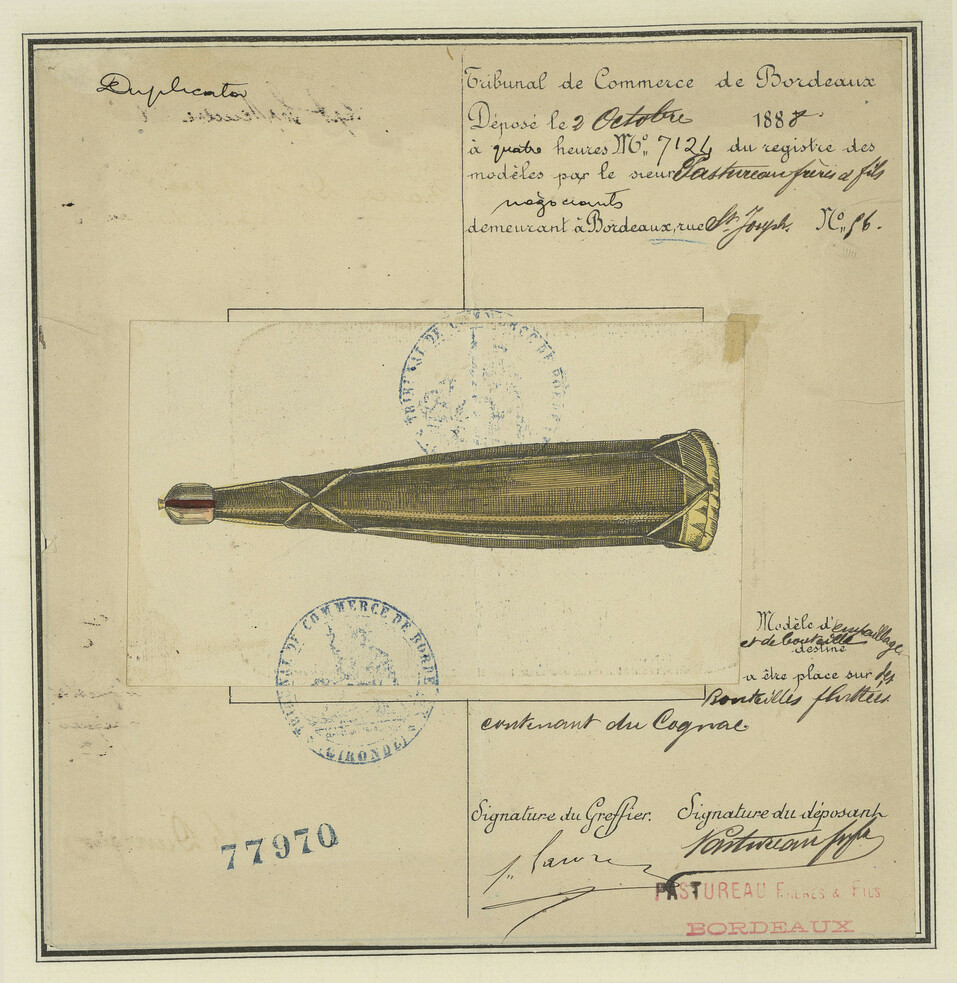 Duplicata
Tribunal de Commerce de Bordeaux
Déposé le 2 Octobre 1888
à quatre heures No. 7124 du registre des
modèles par le sieur Pastureau frères & fils
négociants
demeurant à Bordeaux, rue St. Joseph. No. 56.
TRIBUNAL DE COMMERCE DE BORDE
Modèle d'empaillage
et de bouteille
destiné
a être place sur des
Bouteilles fluttes
contenant du Cognac
TRIBUNAL DE COMMERCE DE BORDE
(GIRONDE)
Signature du Greffier. Signature du déposant
77970
Pastureau
PASTUREAU FRÈRES & FILS
BORDEAUX